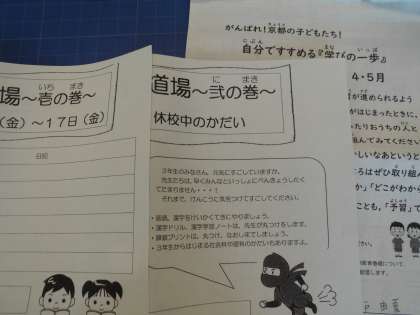 がんばれ！京都の子どもたち！
自分ですすめる『学びの一歩』
4・5月
場～壱の巻～
(金)～17日(金)
日記
道場～弐の巻～
休校中のかだい
3年生のみなさん、元気にすごしていますか。
先生たちは、早くみんなといっしょにべんきょうしたく
てたまりません・・・！
それまで、けんこうに気をつけてすごしてください。
・音読、漢字をけいかくてきにやりましょう。
・漢字ドリル、漢字学習ノートは、先生が丸つけをします。
・算数プリントは、丸つけ、なおしまでしましょう。
・3年生からはじまる社会科や理科のかだいもありますよ。
が進められるよう
がはじまったときに、
ったりおうちの人と
組んでみてください
しいなあというと
ろはぜひ取り組
か」「どこがわから
ことも、「予習」で